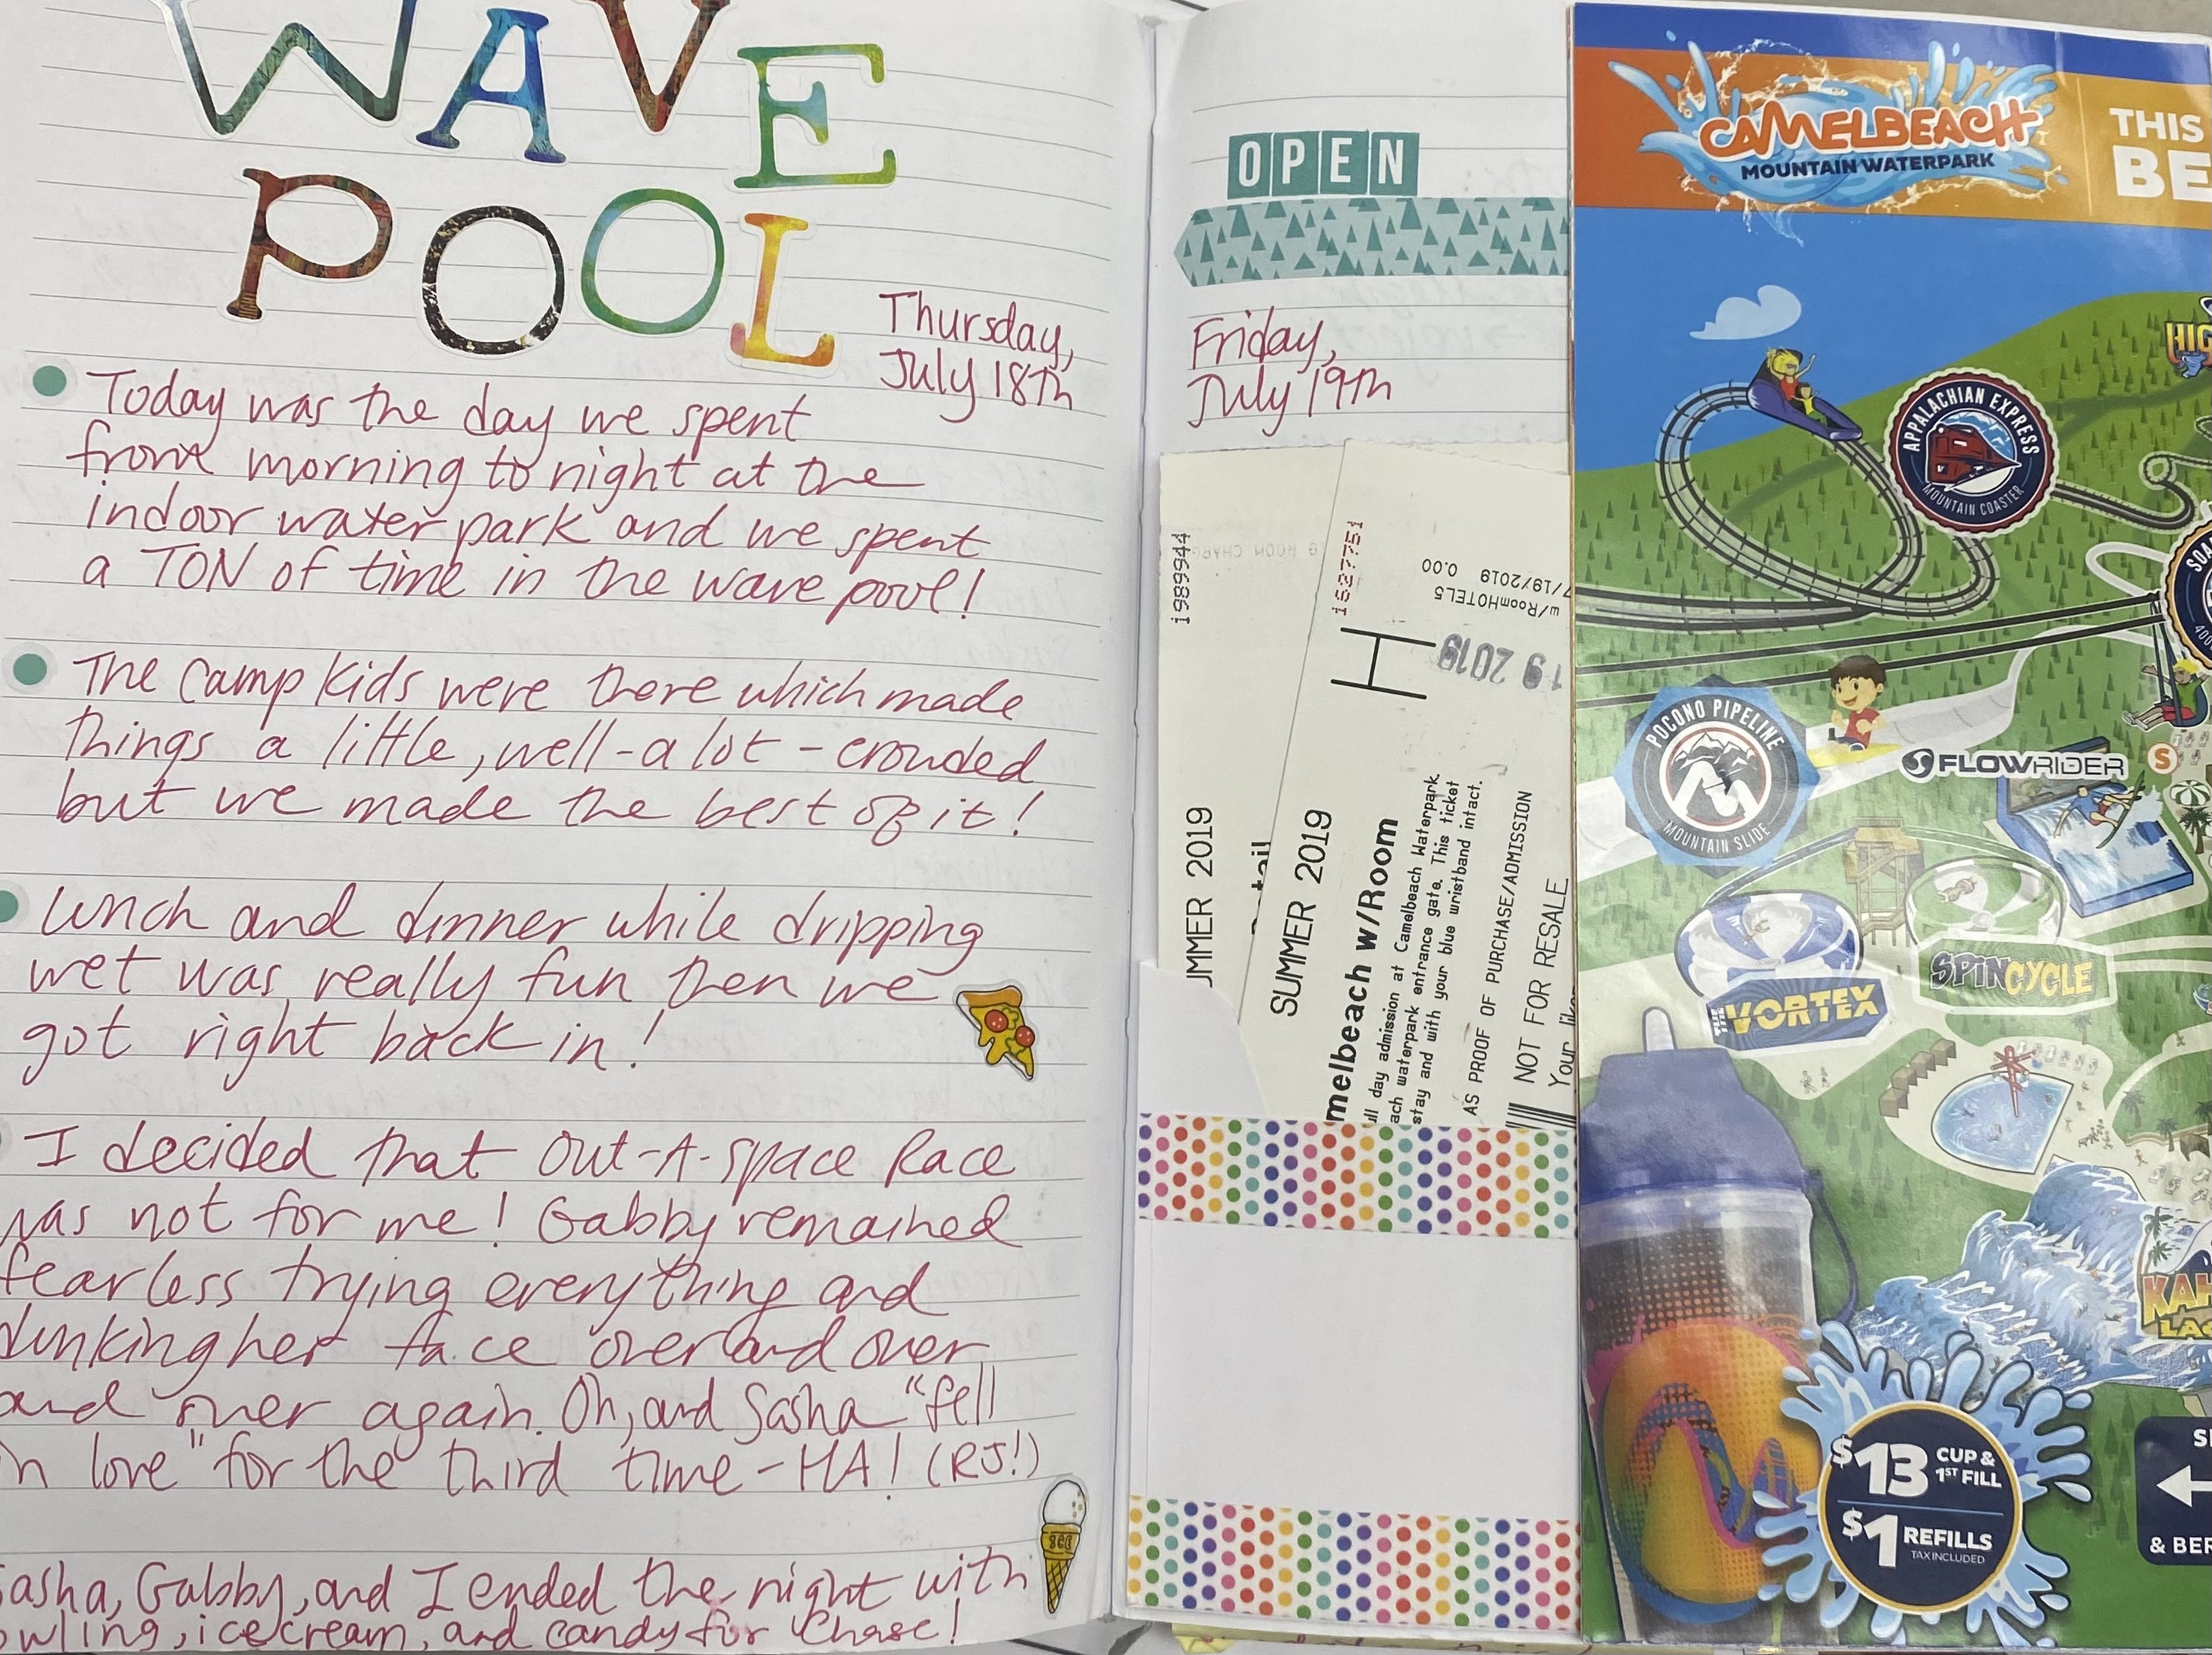 WAVE
POOL
Thursday,
July 18th
Today was the day we spent
from morning to night at the
indoor water park and we spent
a TON of time in the wave pool!
The camp kids were there which made
things a little, well-a lot - crowded
but we made the best of it!
Lunch and dinner while dripping
wet was really fun then we
got right back in!
I decided that Out-A-Space Race
was not for me! Gabby remained
fearless trying everything and
dunking her face over and over
and over again. Oh, and Sasha "fell
in love" for the third time - HA! (RJ!)
Sasha, Gabby, and I ended the night with
owling, icecream, and candy for Chase!
OPEN
Friday,
July 19th
1989944
UMMER 2019
1627751
7/19/2019 0.00
w/RoomHOTEL5
H
19 2019
SUMMER 2019
melbeach w/Room
ull day admission at Camelbeach Waterpark.
ach waterpark entrance gate. This ticket
stay and with your blue wristband intact.
AS PROOF OF PURCHASE/ADMISSION
NOT FOR RESALE.
Your
CAMELBEACH
MOUNTAIN WATERPARK
THIS
BE
HIG
APPALACHIAN EXPRESS
MOUNTAIN COASTER
SOA
400
POCONO PIPELINE
MOUNTAIN SLIDE
FLOWRIDER
S
THE VORTEX
SPINCYCLE
KAH
LAG
$13 CUP &
1ST FILL
$1 REFILLS
TAX INCLUDED
& BER